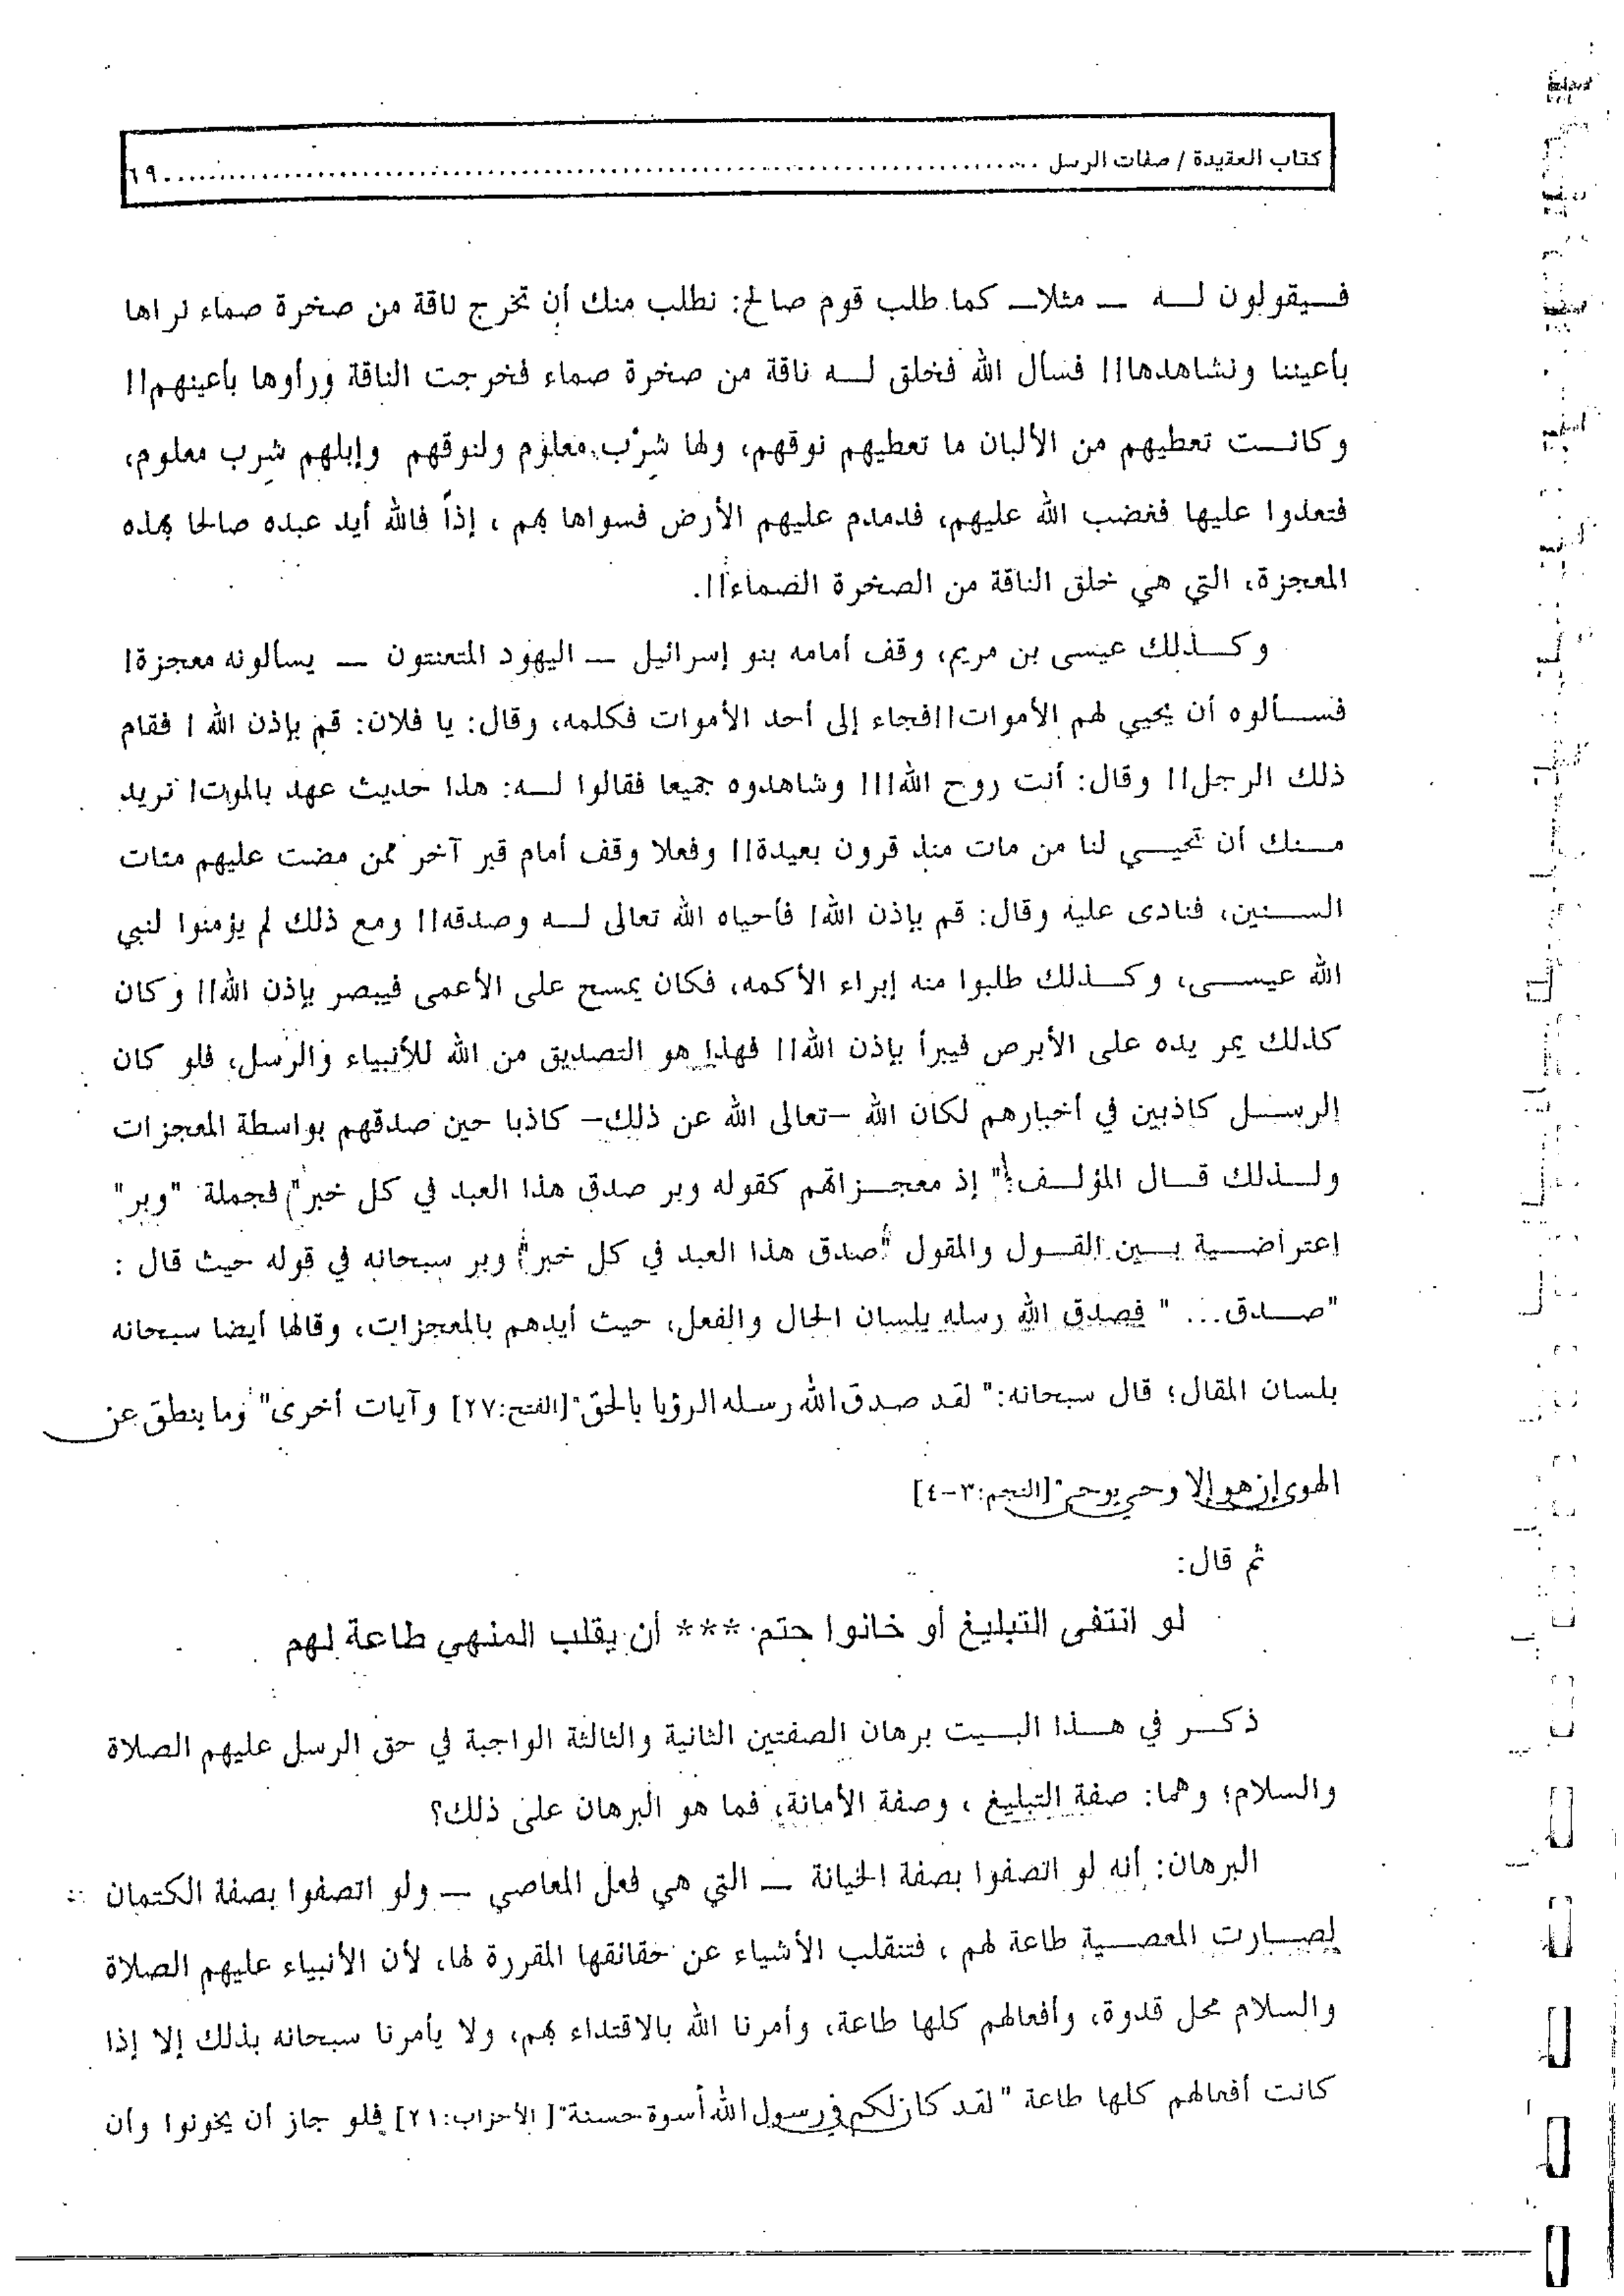 كتاب العقيدة / صفات الرسل ........................................ ٦٩
فسيقولون له – مثلا – كما طلب قوم صالح: نطلب منك أن تخرج ناقة من صخرة صماء نراها
بأعيننا ونشاهدها!! فسأل الله فخلق له ناقة من صخرة صماء فخرجت الناقة ورأوها بأعينهم!!
وكانت تعطيهم من الألبان ما تعطيهم نوقهم، ولها شرب معلوم ولنوقهم وإبلهم شرب معلوم،
فتعدوا عليها فغضب الله عليهم، فدمدم عليهم الأرض فسواها بهم ، إذاً فالله أيد عبده صالحا بهذه
المعجزة، التي هي خلق الناقة من الصخرة الصماء!!.
وكذلك عيسى بن مريم، وقف أمامه بنو إسرائيل – اليهود المتعنتون – يسألونه معجزة!
فسألوه أن يحيي لهم الأموات!!فجاء إلى أحد الأموات فكلمه، وقال: يا فلان: قم بإذن الله ! فقام
ذلك الرجل!! وقال: أنت روح الله!!! وشاهدوه جميعا فقالوا له: هذا حديث عهد بالموت! نريد
منك أن تحيي لنا من مات منذ قرون بعيدة!! وفعلا وقف أمام قبر آخر ممن مضت عليهم مئات
السنين، فنادى عليه وقال: قم بإذن الله! فأحياه الله تعالى له وصدقه!! ومع ذلك لم يؤمنوا لنبي
الله عيسى، وكذلك طلبوا منه إبراء الأكمه، فكان يمسح على الأعمى فيبصر بإذن الله!! وكان
كذلك يمر يده على الأبرص فيبرأ بإذن الله!! فهذا هو التصديق من الله للأنبياء والرسل، فلو كان
الرسل كاذبين في أخبارهم لكان الله –تعالى الله عن ذلك– كاذبا حين صدقهم بواسطة المعجزات
ولذلك قال المؤلف:" إذ معجزاتهم كقوله وبر صدق هذا العبد في كل خبر" فجملة "وبر"
إعتراضية بين القول والمقول "صدق هذا العبد في كل خبر" وبر سبحانه في قوله حيث قال :
"صدق... " فصدق الله رسله بلسان الحال والفعل، حيث أيدهم بالمعجزات، وقالها أيضا سبحانه
بلسان المقال؛ قال سبحانه:" لقد صدق الله رسله الرؤيا بالحق"[الفتح:٢٧] وآيات أخرى" وما ينطق عن
الهوى إن هو إلا وحي يوحى"[النجم:٣-٤]
ثم قال:
لو انتفى التبليغ أو خانوا حتم *** أن يقلب المنهي طاعة لهم
ذكر في هذا البيت برهان الصفتين الثانية والثالثة الواجبة في حق الرسل عليهم الصلاة
والسلام؛ وهما: صفة التبليغ ، وصفة الأمانة، فما هو البرهان على ذلك؟
البرهان: أنه لو اتصفوا بصفة الخيانة – التي هي فعل المعاصي – ولو اتصفوا بصفة الكتمان
لصارت المعصية طاعة لهم ، فتنقلب الأشياء عن حقائقها المقررة لها، لأن الأنبياء عليهم الصلاة
والسلام محل قدوة، وأفعالهم كلها طاعة، وأمرنا الله بالاقتداء بهم، ولا يأمرنا سبحانه بذلك إلا إذا
كانت أفعالهم كلها طاعة "لقد كان لكم في رسول الله أسوة حسنة"[ الأحزاب:٢١] فلو جاز أن يخونوا وأن